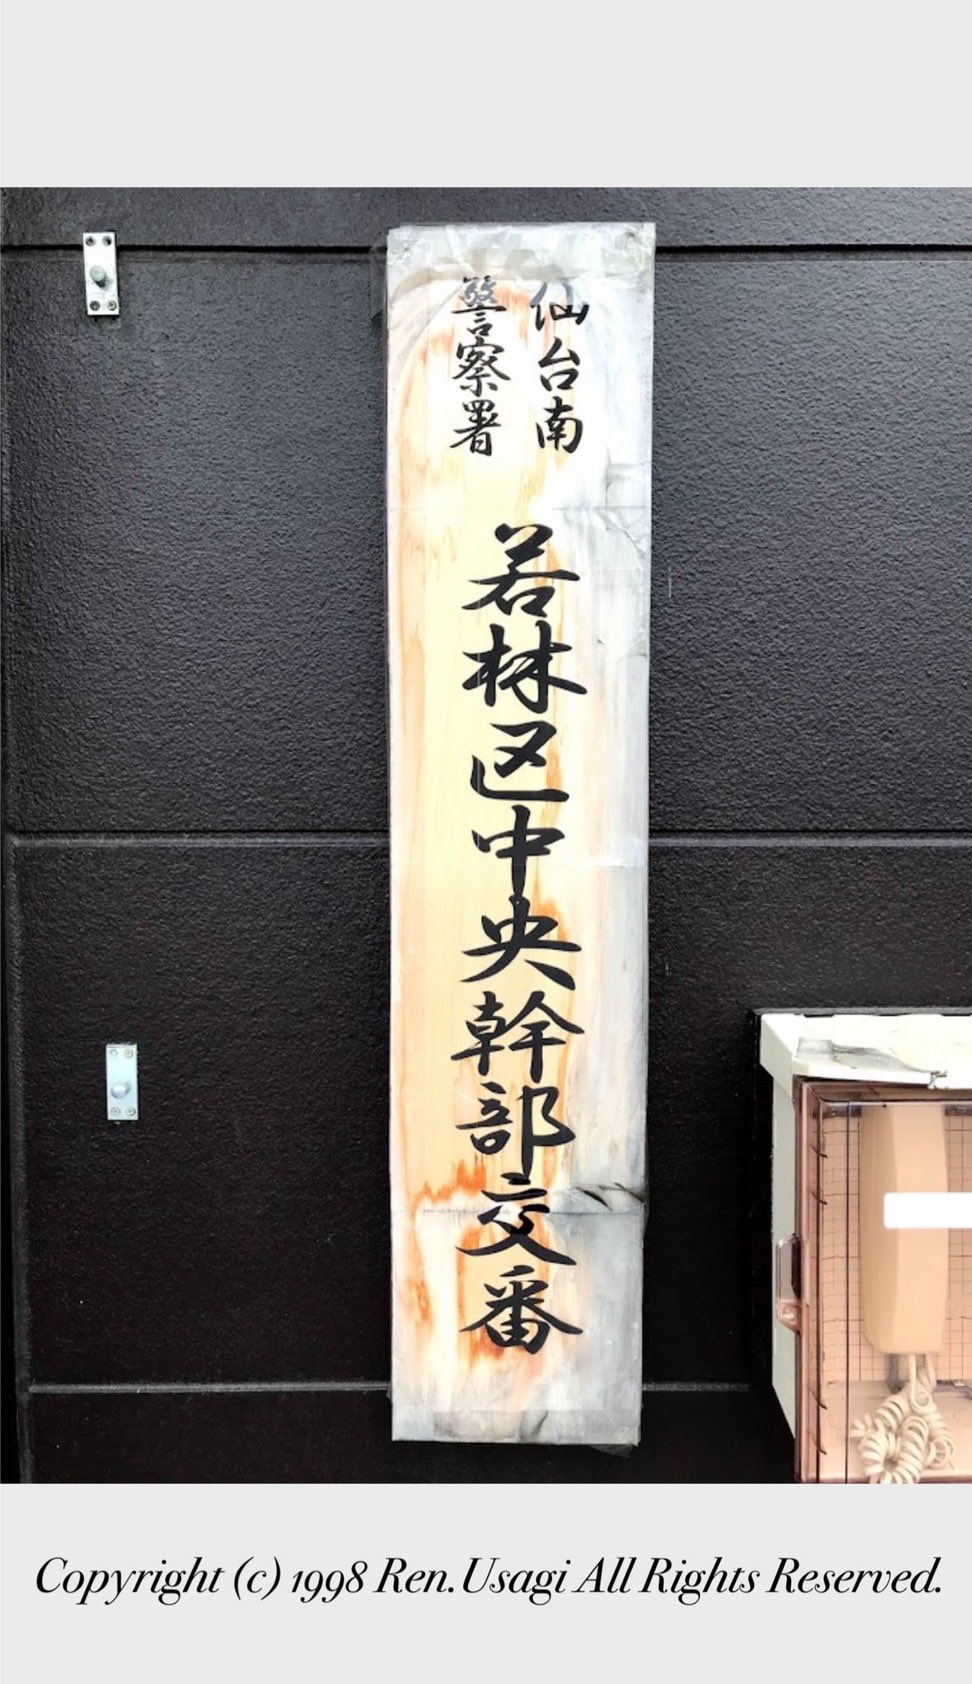 仙台南
警察署
若林区中央幹部交番
Copyright (c) 1998 Ren.Usagi All Rights Reserved.